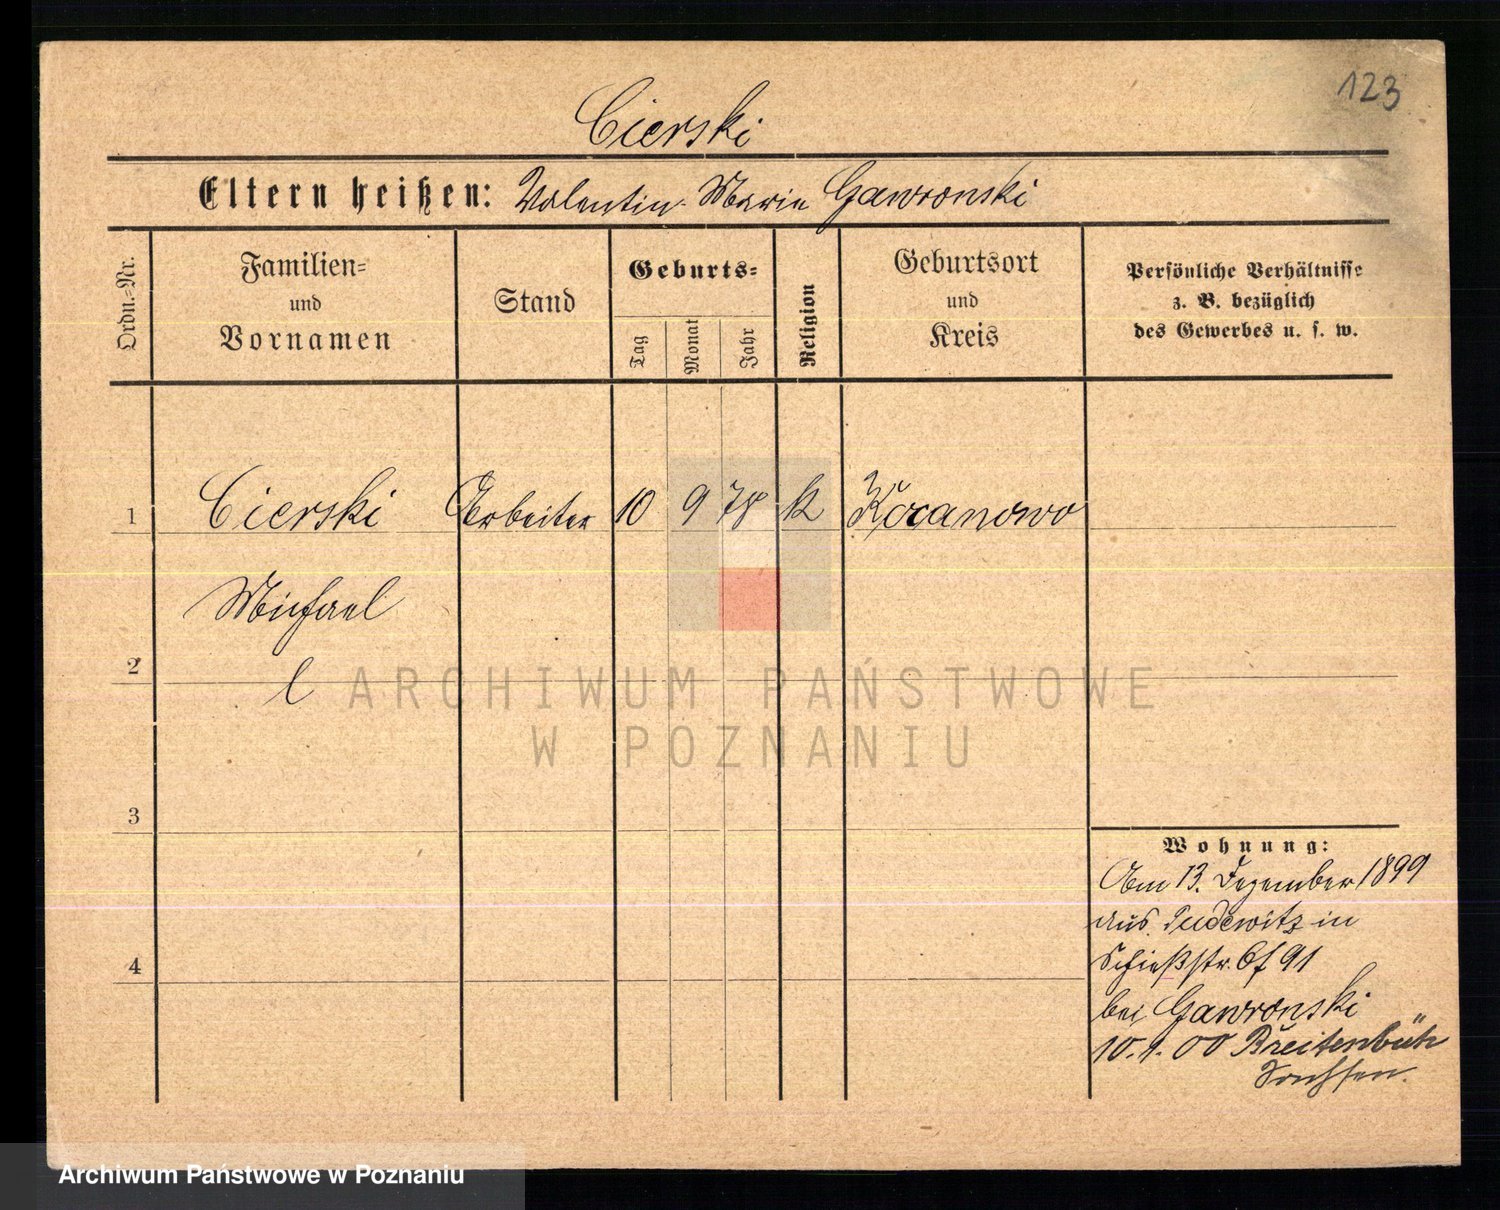 123
Cierski
Eltern heißen: Valentin Marie Gawronski
Ordn.-Nr.
Familien-
und
Vornamen
Stand
Geburts-
Tag
Monat
Jahr
Religion
Geburtsort
und
Kreis
Persönliche Verhältnisse
z. B. bezüglich
des Gewerbes u. s. w.
1 Cierski Arbeiter 10 9 78 k Kocanowo
Michael
2
l
3
4
Wohnung:
Am 13. Dezember 1899
aus Pudewitz in
Schießstr. 6f 91
bei Gawronski
10.1.00
Sachsen.
ARCHIWUM PAŃSTWOWE
W POZNANIU
Archiwum Państwowe w Poznaniu